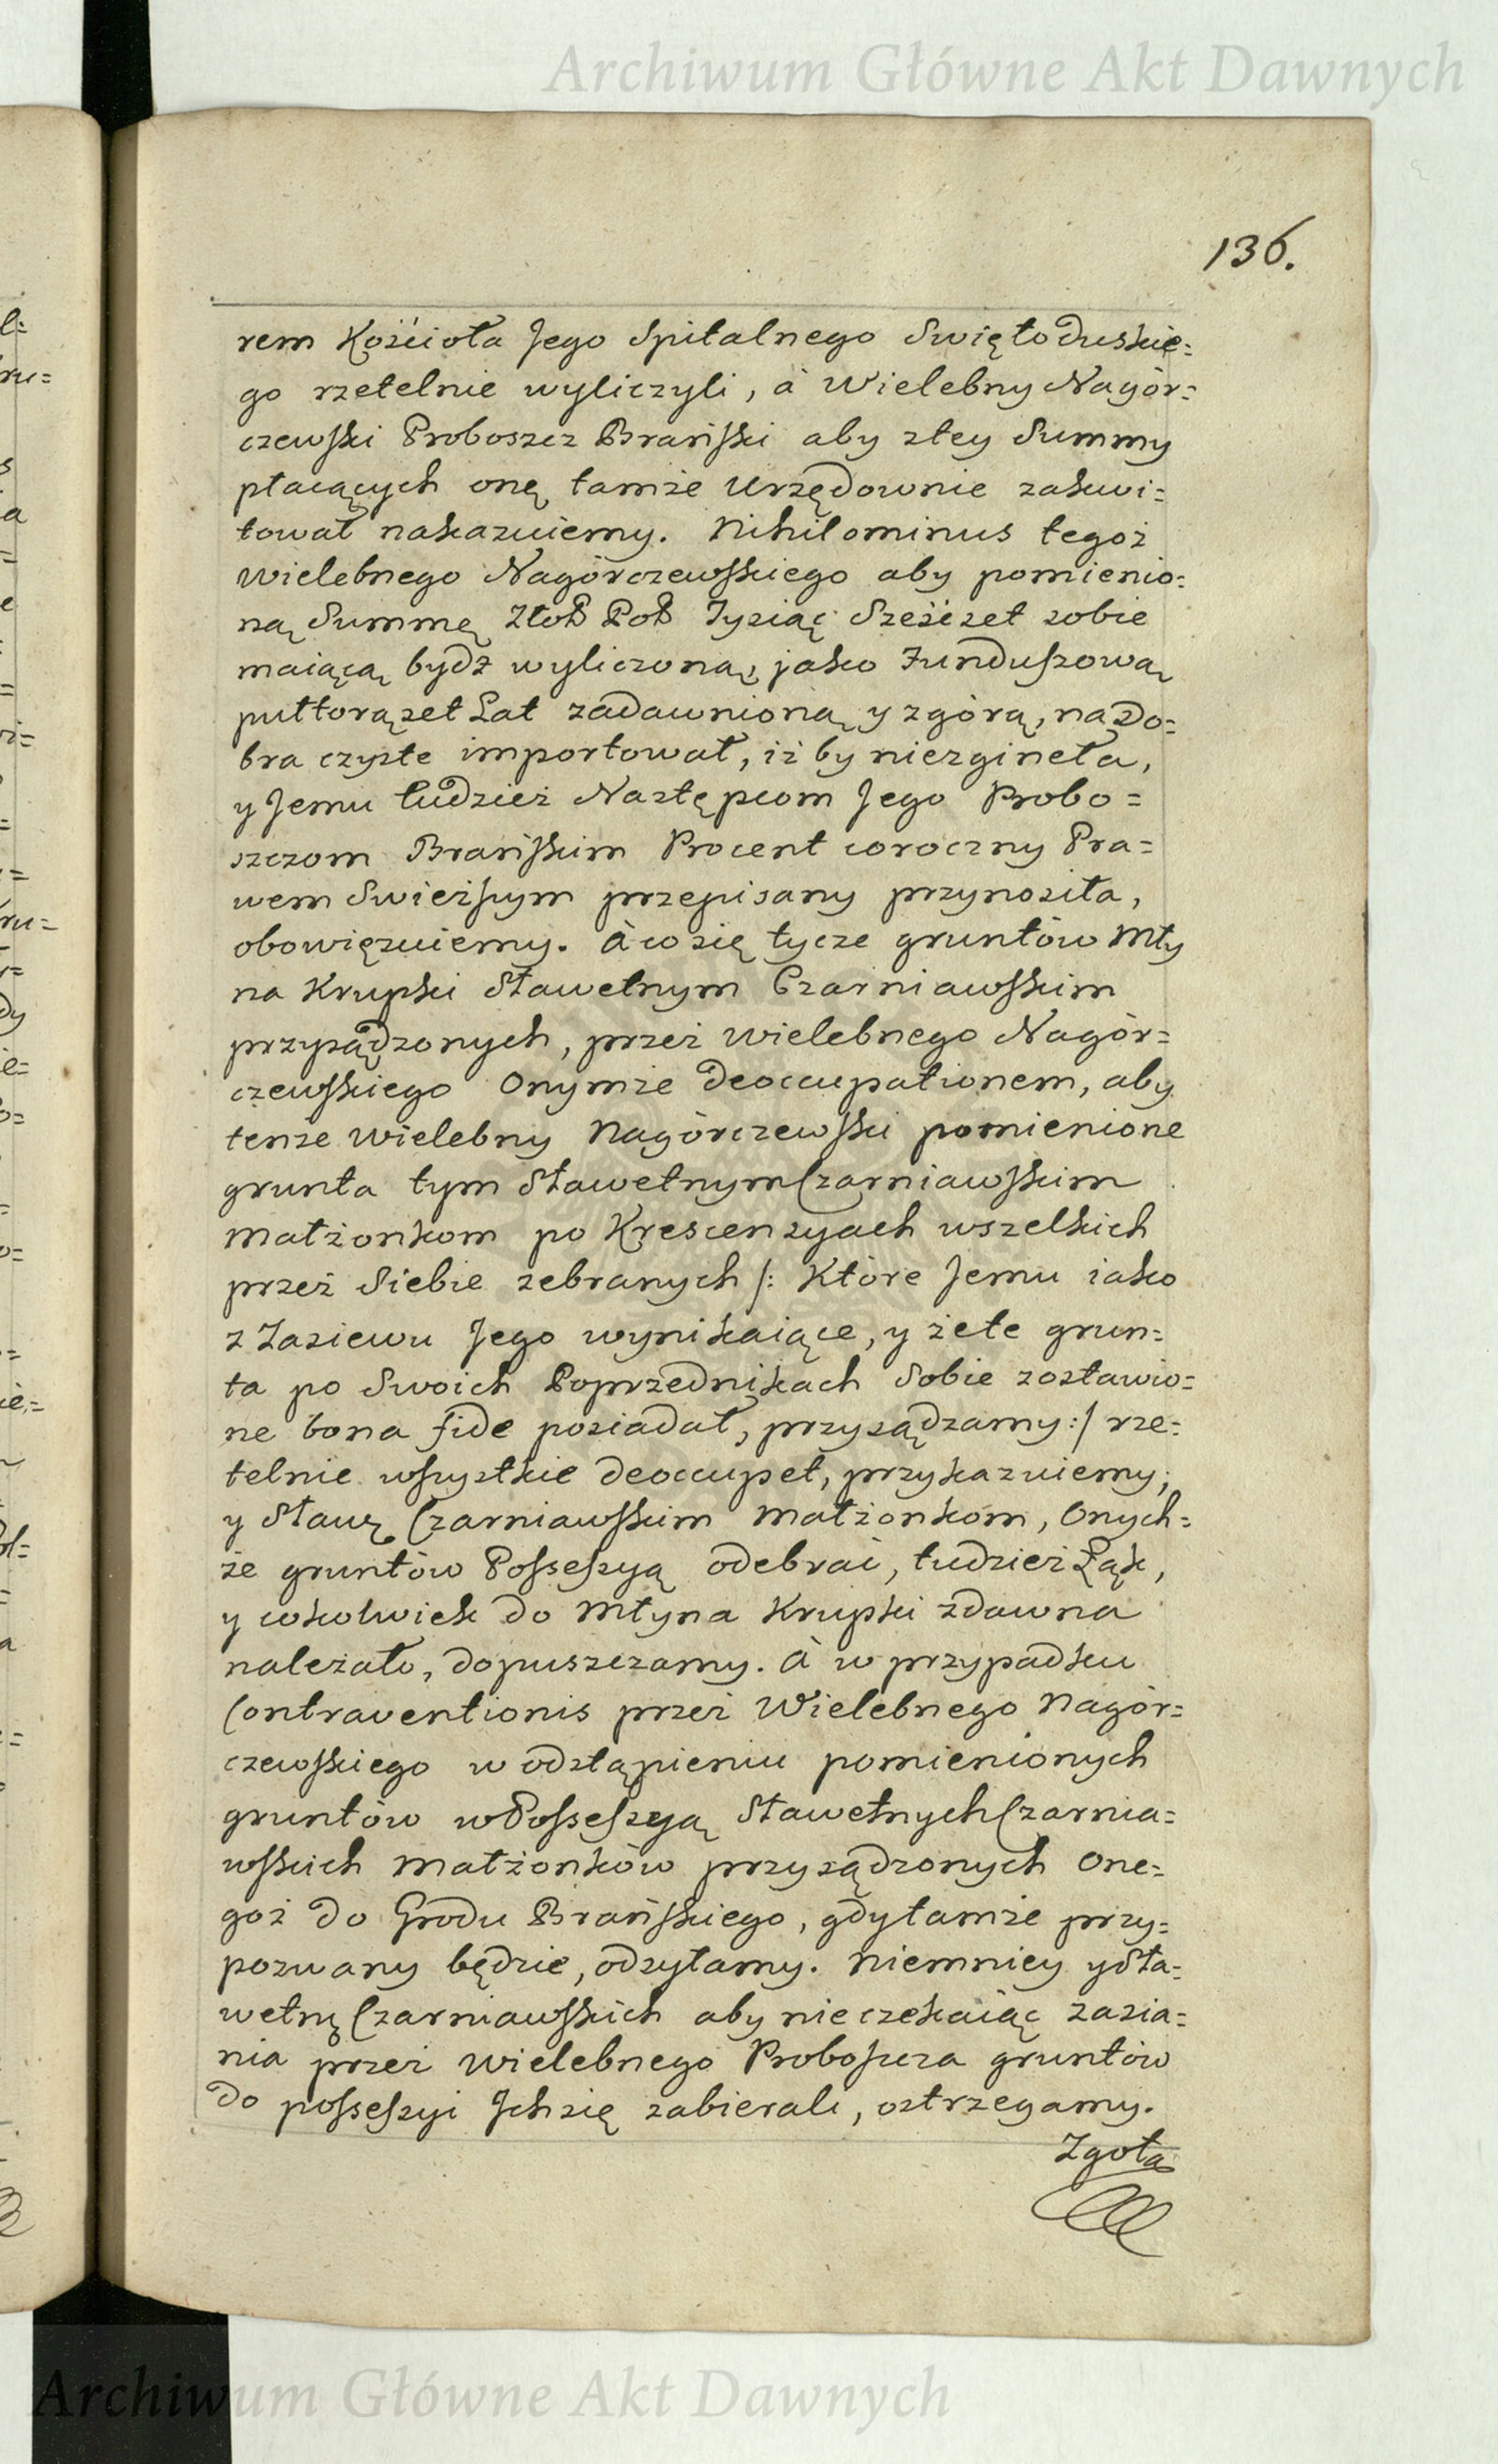 Archiwum Główne Akt Dawnych
136.
rem Kościoła Jego Spitalnego Swiętoduskie=
go rzetelnie wyliczyli, à Wielebny Nagòr=
czewski Proboszcz Brański aby ztey Summy
płacących onę tamże Urzędownie zakwi=
tował nakazuiemy. Nihilominus tegoż
Wielebnego Nagòrczewskiego aby pomienio=
ną Summę Złot Pol Tysiąc Sześćset sobie
maiącą bydź wyliczoną, jako Funduszową
pułtorąset Lat zadawnioną y zgórą, na Do=
bra czyste importował, iż by niezgineła,
y Jemu tudzież Następcom Jego Probo=
szczom Brańskim Procent coroczny Pra=
wem Swieższym przepisany przynosiła,
obowięzuiemy. À co się tycze gruntòw Mły
na Krupki Sławetnym Czarniawskim
przysądzonych, przez Wielebnego Nagòr=
czewskiego Onymże deoccupationem, aby
tenże Wielebny Nagòrczewski pomienione
grunta tym Sławetnym Czarniawskim
Małżonkom po Krescenzyach wszelkich
przez Siebie zebranych /: Które Jemu iako
z Zasiewu Jego wynikaiące, y że te grun=
ta po Swoich Poprzednikach Sobie zostawio=
ne bona fide posiadał, przysądzamy :/ rze=
telnie wszystkie deoccupet, przykazuiemy,
y Sławę Czarniawskim Małżonkom, Onych=
że gruntòw Possessyą odebrać, tudzież Łąk,
y cokolwiek do Młyna Krupki zdawna
należało, dopuszczamy. À w przypadku
Contraventionis przez Wielebnego Nagòr=
czewskiego w odstąpieniu pomienionych
gruntòw w Possessyą Sławetnych Czarnia=
wskich Małżonkòw przysądzonych One=
goż do Grodu Brańskiego, gdy tamże przy=
pozwany będzie, odsyłamy. Niemniey y Sła=
wetnę Czarniawskich aby nie czekaiąc zasia=
nia przez Wielebnego Proboszcza gruntòw
do possessyi Jch się zabierali, ostrzegamy.
Zgoła
Archiwum Główne Akt Dawnych